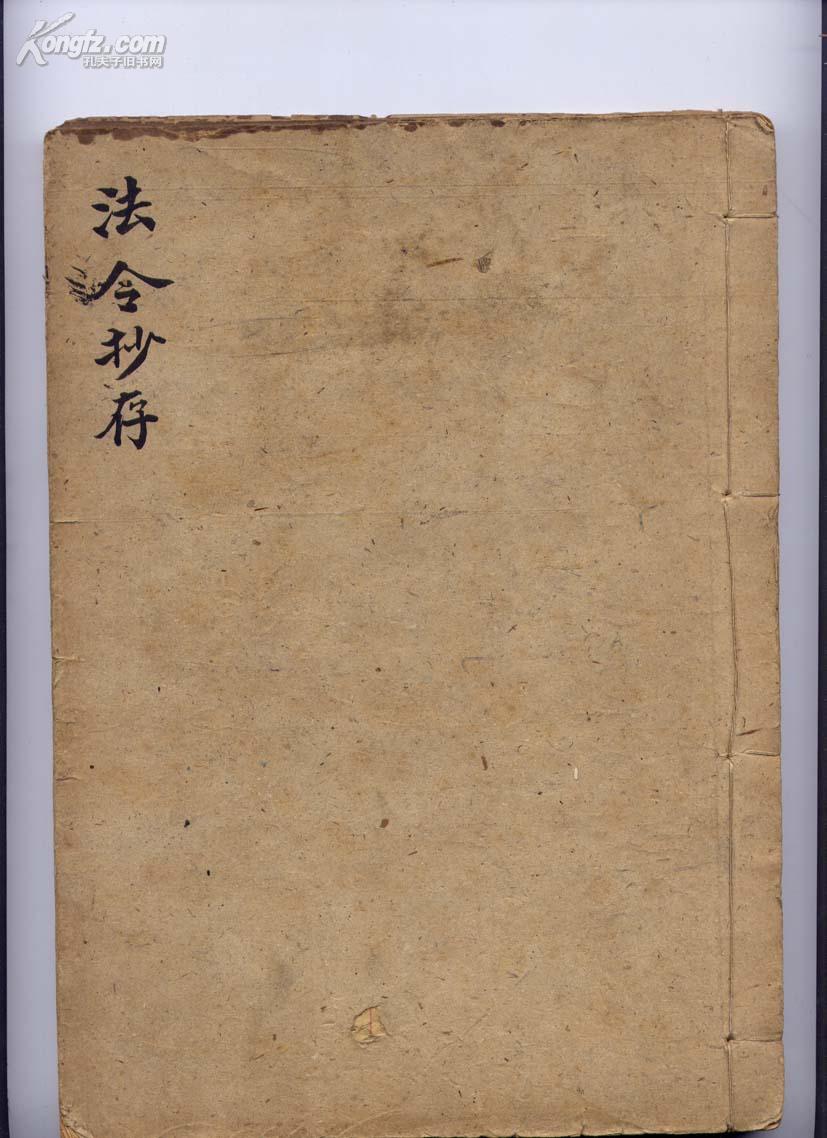 Kongfz.com
孔夫子旧书网
法令抄存